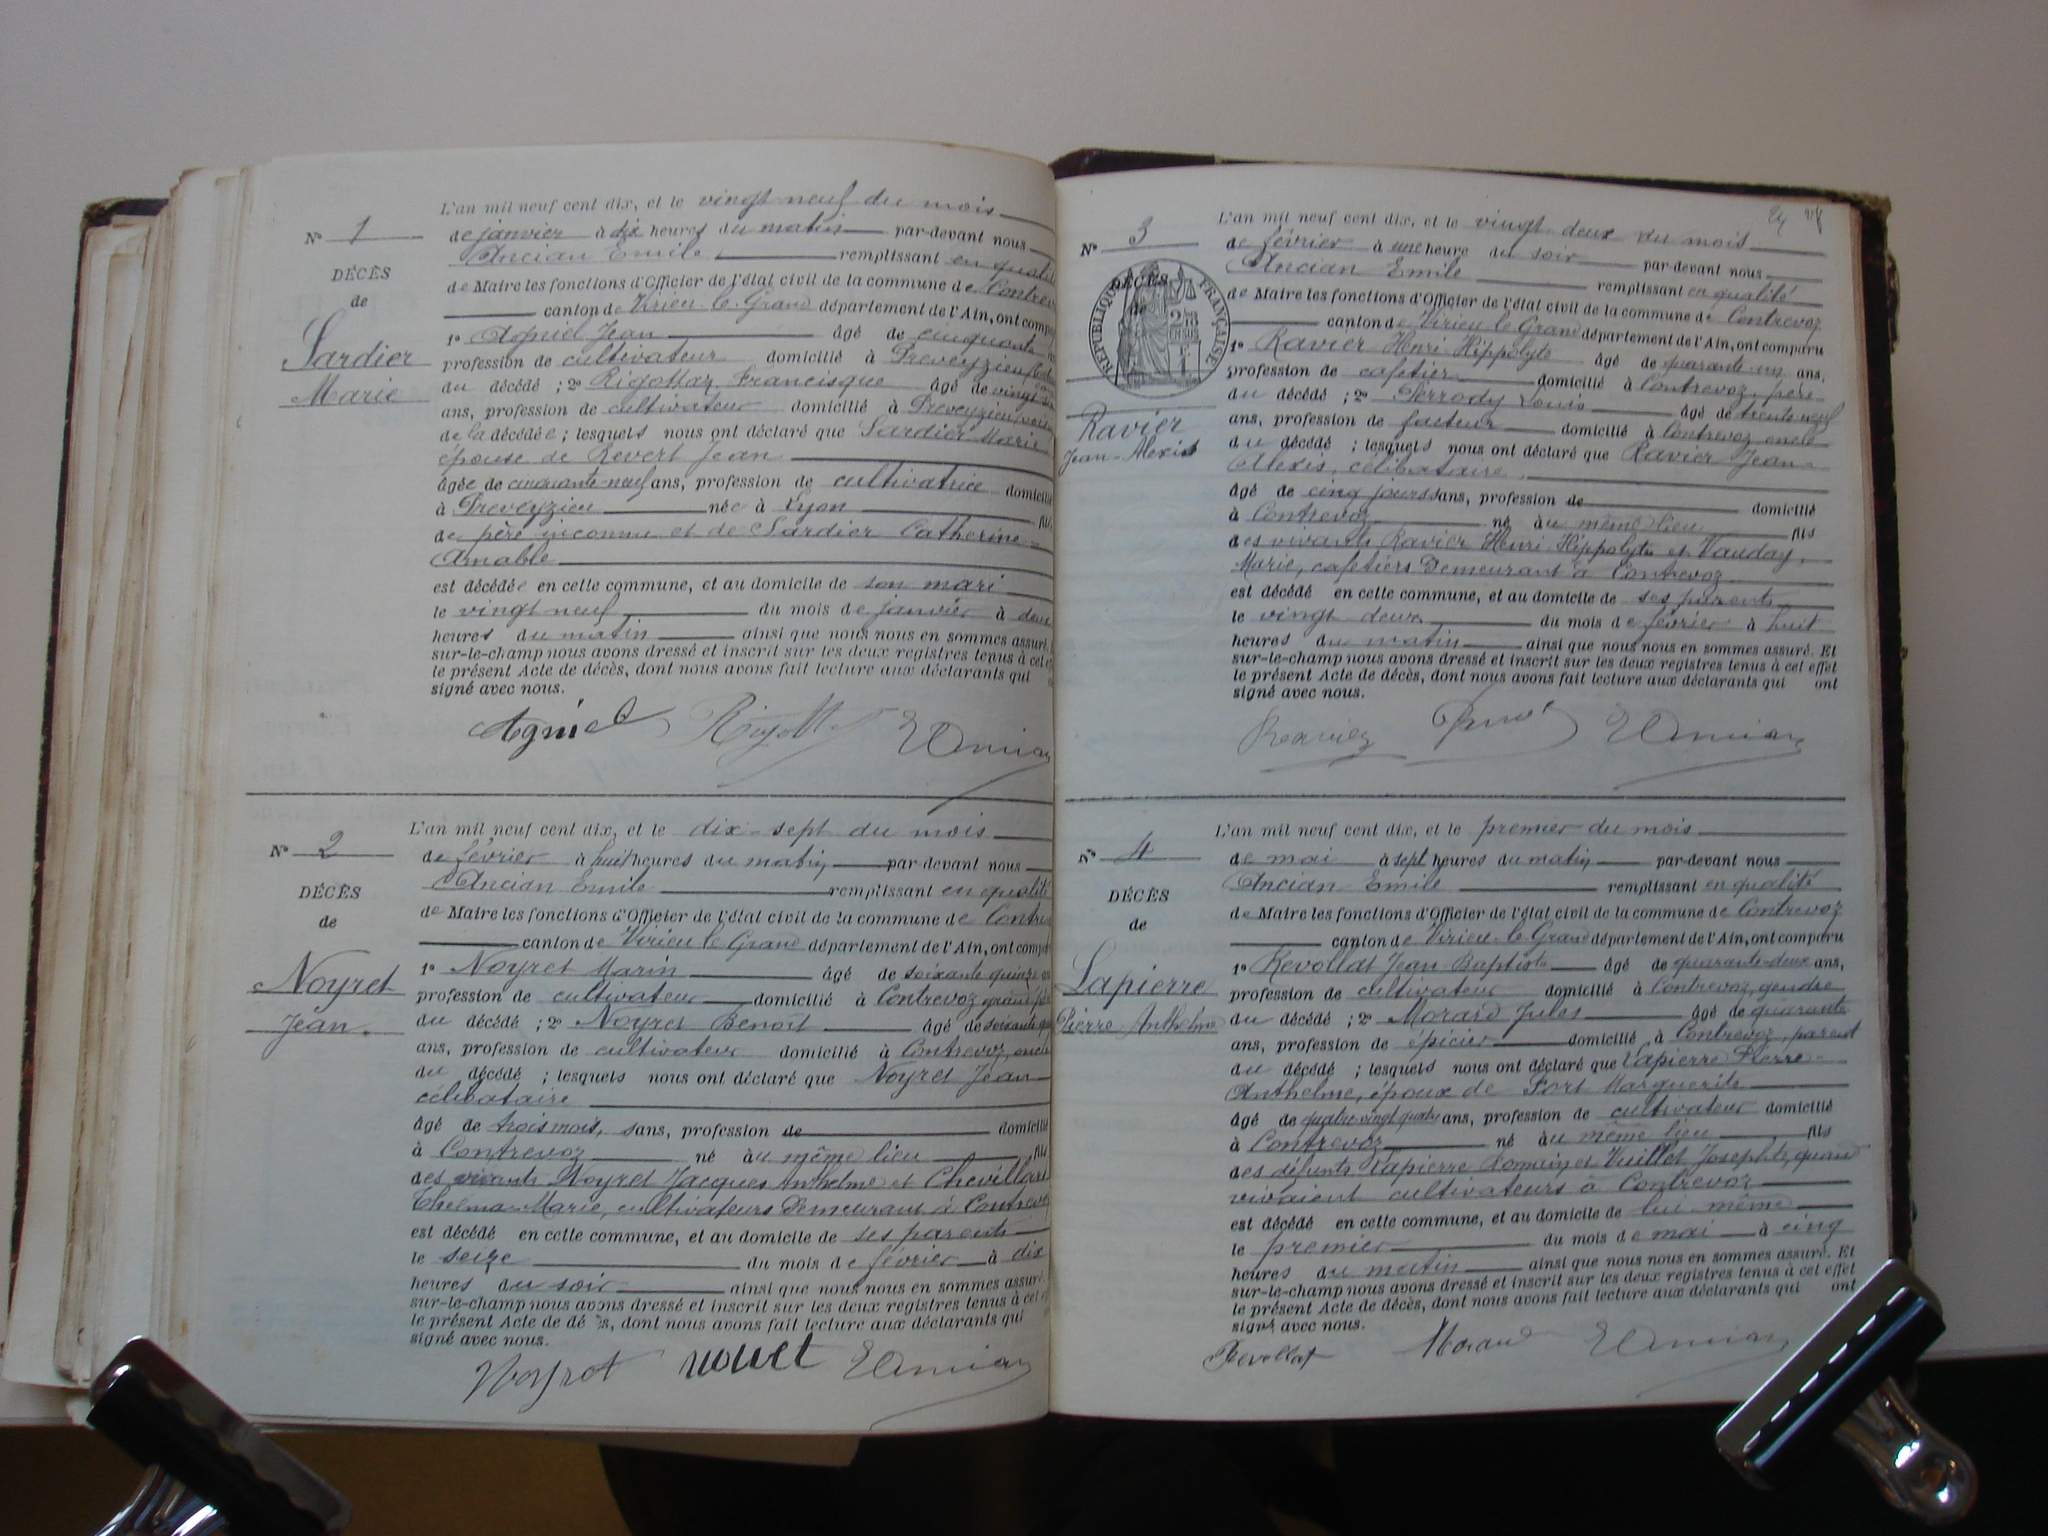 N° 1
DÉCÈS
de
Sardier
Marie
L'an mil neuf cent dix, et le vingt neuf du mois
de janvier à dix heures du matin par-devant nous
Ancian Emile remplissant en qualité
de Maire les fonctions d'Officier de l'état civil de la commune de Contrev
canton de Virieu-le-Grand département de l'Ain, ont compa
1° Agniel Jean âgé de cinquante
profession de cultivateur domicilié à Preveyzieu
du décédé ; 2° Rigottaz Francisque âgé de vingt
ans, profession de cultivateur domicilié à Preveyzieu, voisin
de la décédée ; lesquels nous ont déclaré que Sardier Marie
épouse de Revert Jean
âgée de cinquante-neuf ans, profession de cultivatrice domicilié
à Preveyzieu née à Lyon fils
de père inconnu et de Sardier Catherine
Amable
est décédée en cette commune, et au domicile de son mari
le vingt neuf du mois de janvier à deux
heures du matin ainsi que nous nous en sommes assuré.
sur-le-champ nous avons dressé et inscrit sur les deux registres tenus à cet e
le présent Acte de décès, dont nous avons fait lecture aux déclarants qui
signé avec nous.
Agniel Rigottaz EAncian
N° 2
DÉCÈS
de
Noyret
Jean.
L'an mil neuf cent dix, et le dix-sept du mois
de février à huit heures du matin par-devant nous
Ancian Emile remplissant en qualité
de Maire les fonctions d'Officier de l'état civil de la commune de Contre
canton de Virieu le Grand département de l'Ain, ont comp
1° Noyret Marin âgé de soixante quinze ans
profession de cultivateur domicilié à Contrevoz grand père
du décédé ; 2° Noyret Benoît âgé de soixante
ans, profession de cultivateur domicilié à Contrevoz, oncle
du décédé ; lesquels nous ont déclaré que Noyret Jean
célibataire
âgé de trois mois, sans, profession de domicilié
à Contrevoz né au même lieu fils
des vivants Noyret Jacques Anthelme et Chevillard
Thelma-Marie, cultivateurs demeurant à Contrevoz
est décédé en cette commune, et au domicile de ses parents
le seize du mois de février à dix
heures du soir ainsi que nous nous en sommes assuré.
sur-le-champ nous avons dressé et inscrit sur les deux registres tenus à cet e
le présent Acte de décès, dont nous avons fait lecture aux déclarants qui
signé avec nous.
Noyret EAncian
N° 3
DÉCÈS
RÉPUBLIQUE FRANÇAISE
Ravier
Jean-Alexis
L'an mil neuf cent dix, et le vingt deux du mois
de février à une heure du soir par-devant nous
Ancian Emile remplissant en qualité
de Maire les fonctions d'Officier de l'état civil de la commune de Contrevoz
canton de Virieu le Grand département de l'Ain, ont comparu
1° Ravier Henri Hippolyte âgé de quarante un ans,
profession de cafetier domicilié à Contrevoz, père
du décédé ; 2° Perrody Louis âgé de trente-neuf
ans, profession de facteur domicilié à Contrevoz oncle
du décédé ; lesquels nous ont déclaré que Ravier Jean-
Alexis, célibataire.
âgé de cinq jours sans, profession de domicilié
à Contrevoz né au même lieu fils
des vivants Ravier Henri Hippolyte et Vauday,
Marie, cafetiers demeurant à Contrevoz
est décédé en cette commune, et au domicile de ses parents
le vingt deux du mois de février à huit
heures du matin ainsi que nous nous en sommes assuré. Et
sur-le-champ nous avons dressé et inscrit sur les deux registres tenus à cet effet
le présent Acte de décès, dont nous avons fait lecture aux déclarants qui ont
signé avec nous.
Ravier EAncian
N° 4
DÉCÈS
de
Lapierre
Pierre-Anthelme
L'an mil neuf cent dix, et le premier du mois
de mai à sept heures du matin par-devant nous
Ancian Emile remplissant en qualité
de Maire les fonctions d'Officier de l'état civil de la commune de Contrevoz
canton de Virieu-le-Grand département de l'Ain, ont comparu
1° Revollat Jean Baptiste âgé de quarante-deux ans,
profession de cultivateur domicilié à Contrevoz, gendre
du décédé ; 2° Morard Jules âgé de quarante
ans, profession de épicier domicilié à Contrevoz, parent
du décédé ; lesquels nous ont déclaré que Lapierre Pierre-
Anthelme, époux de Fort Marguerite
âgé de quatre vingt quatre ans, profession de cultivateur domicilié
à Contrevoz né au même lieu fils
des défunts Lapierre Romain et Vuillet Josephte, quand
vivaient cultivateurs à Contrevoz
est décédé en cette commune, et au domicile de lui-même
le premier du mois de mai à cinq
heures du matin ainsi que nous nous en sommes assuré. Et
sur-le-champ nous avons dressé et inscrit sur les deux registres tenus à cet effet
le présent Acte de décès, dont nous avons fait lecture aux déclarants qui ont
signé avec nous.
Revollat Morard EAncian